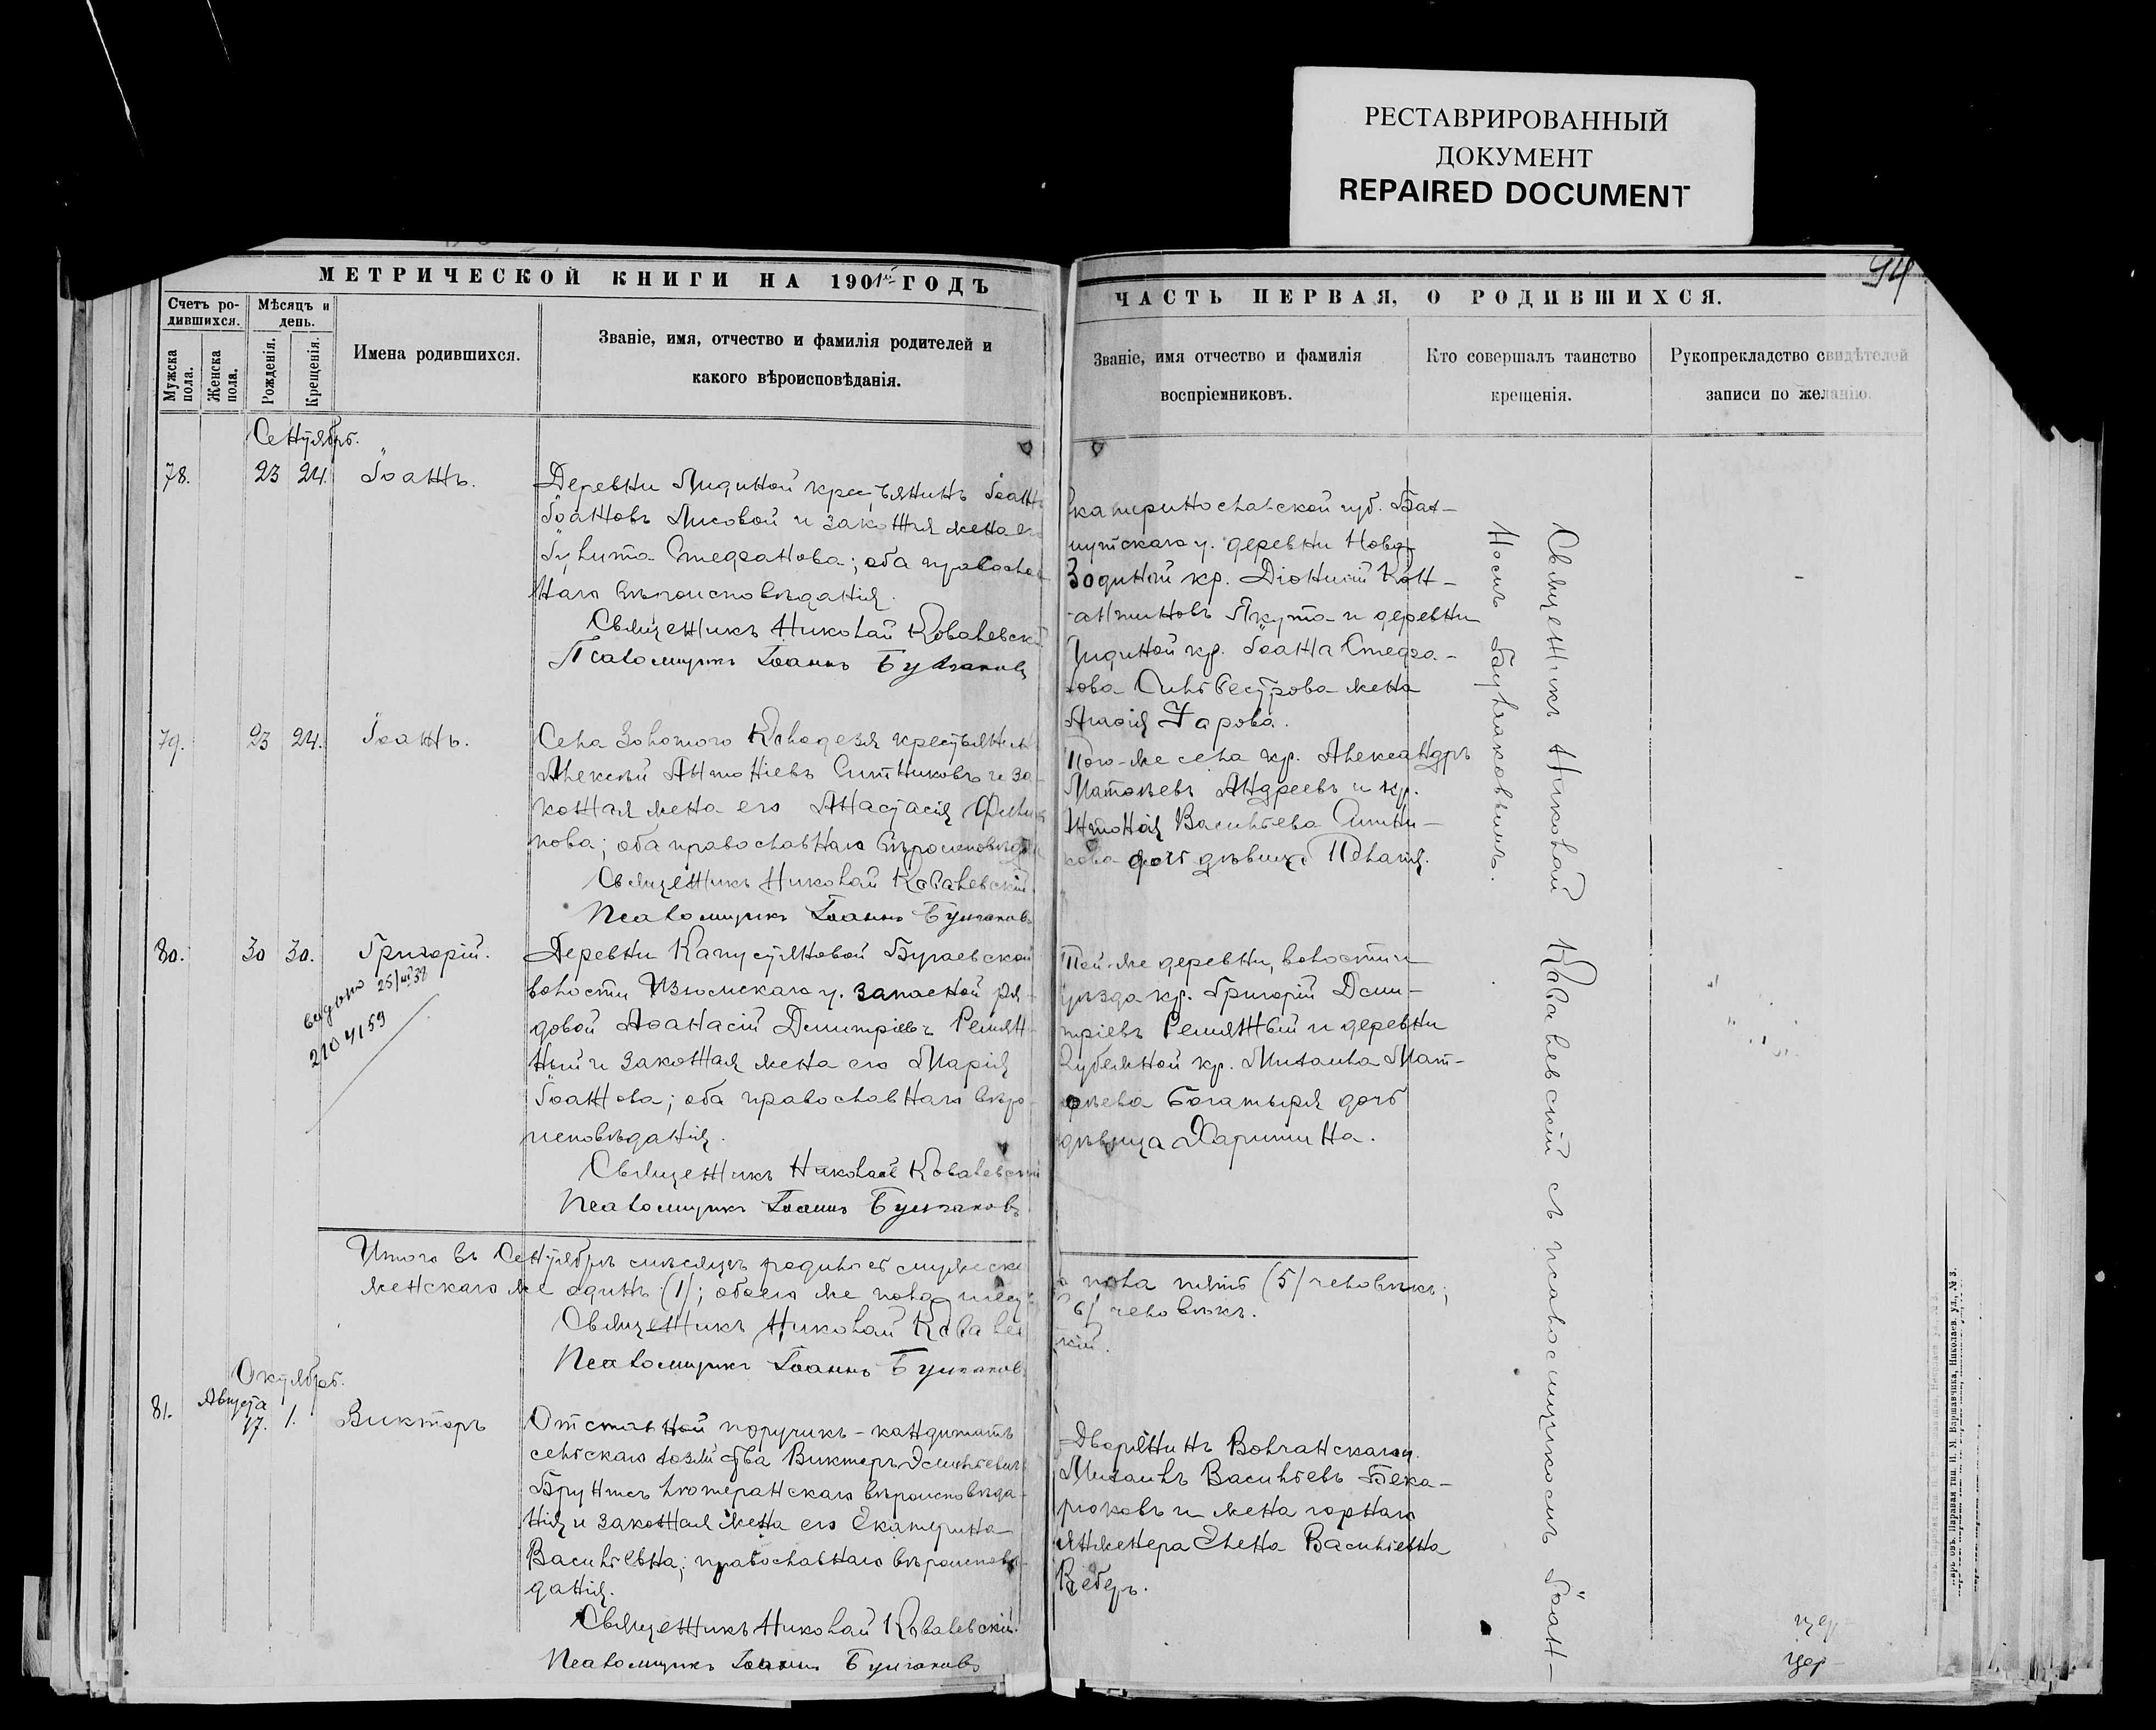 РЕСТАВРИРОВАННЫЙ
ДОКУМЕНТ
REPAIRED DOCUMENT
94
МЕТРИЧЕСКОЙ КНИГИ НА 1901й ГОДЪ
Счетъ ро-
дившихся.
Мужска
пола.
Женска
пола.
Мѣсяцъ и
день.
Рожденія.
Крещенія.
Имена родившихся.
Званіе, имя, отчество и фамилія родителей и
какого вѣроисповѣданія.
ЧАСТЬ ПЕРВАЯ, О РОДИВШИХСЯ.
Званіе, имя отчество и фамилія
воспріемниковъ.
Кто совершалъ таинство
крещенія.
Рукоприкладство свидѣтелей
записи по желанію.
Сентябрь.
78. 23 24. Іоаннъ.
Деревни Лидиной крестьянинъ Іоаннъ
Іоанновъ Лисовой и законная жена
Іулита Стефанова; оба православ
наго вѣроисповѣданія.
Священникъ Николай Ковалевскій
Псаломщикъ Іоаннъ Булгаковъ
Екатеринославской губ. Бах-
мутскаго у. деревни Ново-
кр. Діонисій Кон-
-антиновъ Якута и деревни
Лидиной кр. Іоанна Стефа-
нова Сильвестрова жена
Агафія
79. 23 24. Іоаннъ.
Села Золотого Колодезя крестьянинъ
Алексѣй Антоніевъ Ситниковъ и за-
конная жена его Анастасія Филип
пова; оба православнаго вѣроисповѣдан
Священникъ Николай Ковалевскій.
Псаломщикъ Іоаннъ Булгаковъ
Того-же села кр. Александръ
Матѳеевъ Андреевъ и кр.
Антонія Васильева Ситни-
кова дочь дѣвица Пелагія.
80. 30 30. Григорій.
выдано 25/VII 38
210 4159
Деревни Капустяновой Бугаевской
волости Изюмскаго у. запасной ря-
довой Аѳанасій Димитріевъ Ремян-
ный и законная жена его Марія
Іоаннова; оба православнаго вѣро-
исповѣданія.
Священникъ Николай Ковалевскій
Псаломщикъ Іоаннъ Булгаковъ
Той-же деревни, волости и
уѣзда кр. Григорій Дими-
тріевъ Ремянный и деревни
кр. Михаила Мат-
ѳеева Богатыря дочь
дѣвица Харитина.
Итого въ Сентябрѣ мѣсяцѣ родилось мужеска
го пола пять (5) человѣкъ;
женскаго же одинъ (1); обоего же пола шесть
(6) человѣкъ.
Священникъ Николай Ковалев
скій.
Псаломщикъ Іоаннъ Булгаковъ
Октябрь.
Августа
81. 17. 1. Викторъ
Отставной поручикъ - кандидатъ
сельскаго хозяйства Викторъ Эмильевичъ
Брунтсъ лютеранскаго вѣроисповѣда-
нія и законная жена его Екатерина
Васильевна; православнаго вѣроисповѣ-
данія.
Священникъ Николай Ковалевскій.
Псаломщикъ Іоаннъ Булгаковъ
Дворянинъ Волчанскаго у.
Михаилъ Васильевъ Бека-
рюковъ и жена горнаго
инженера Елена Васильевна
Кеберъ.
Священникъ Николай Ковалевскій съ псаломщикомъ Іоан-
номъ Булгаковымъ.